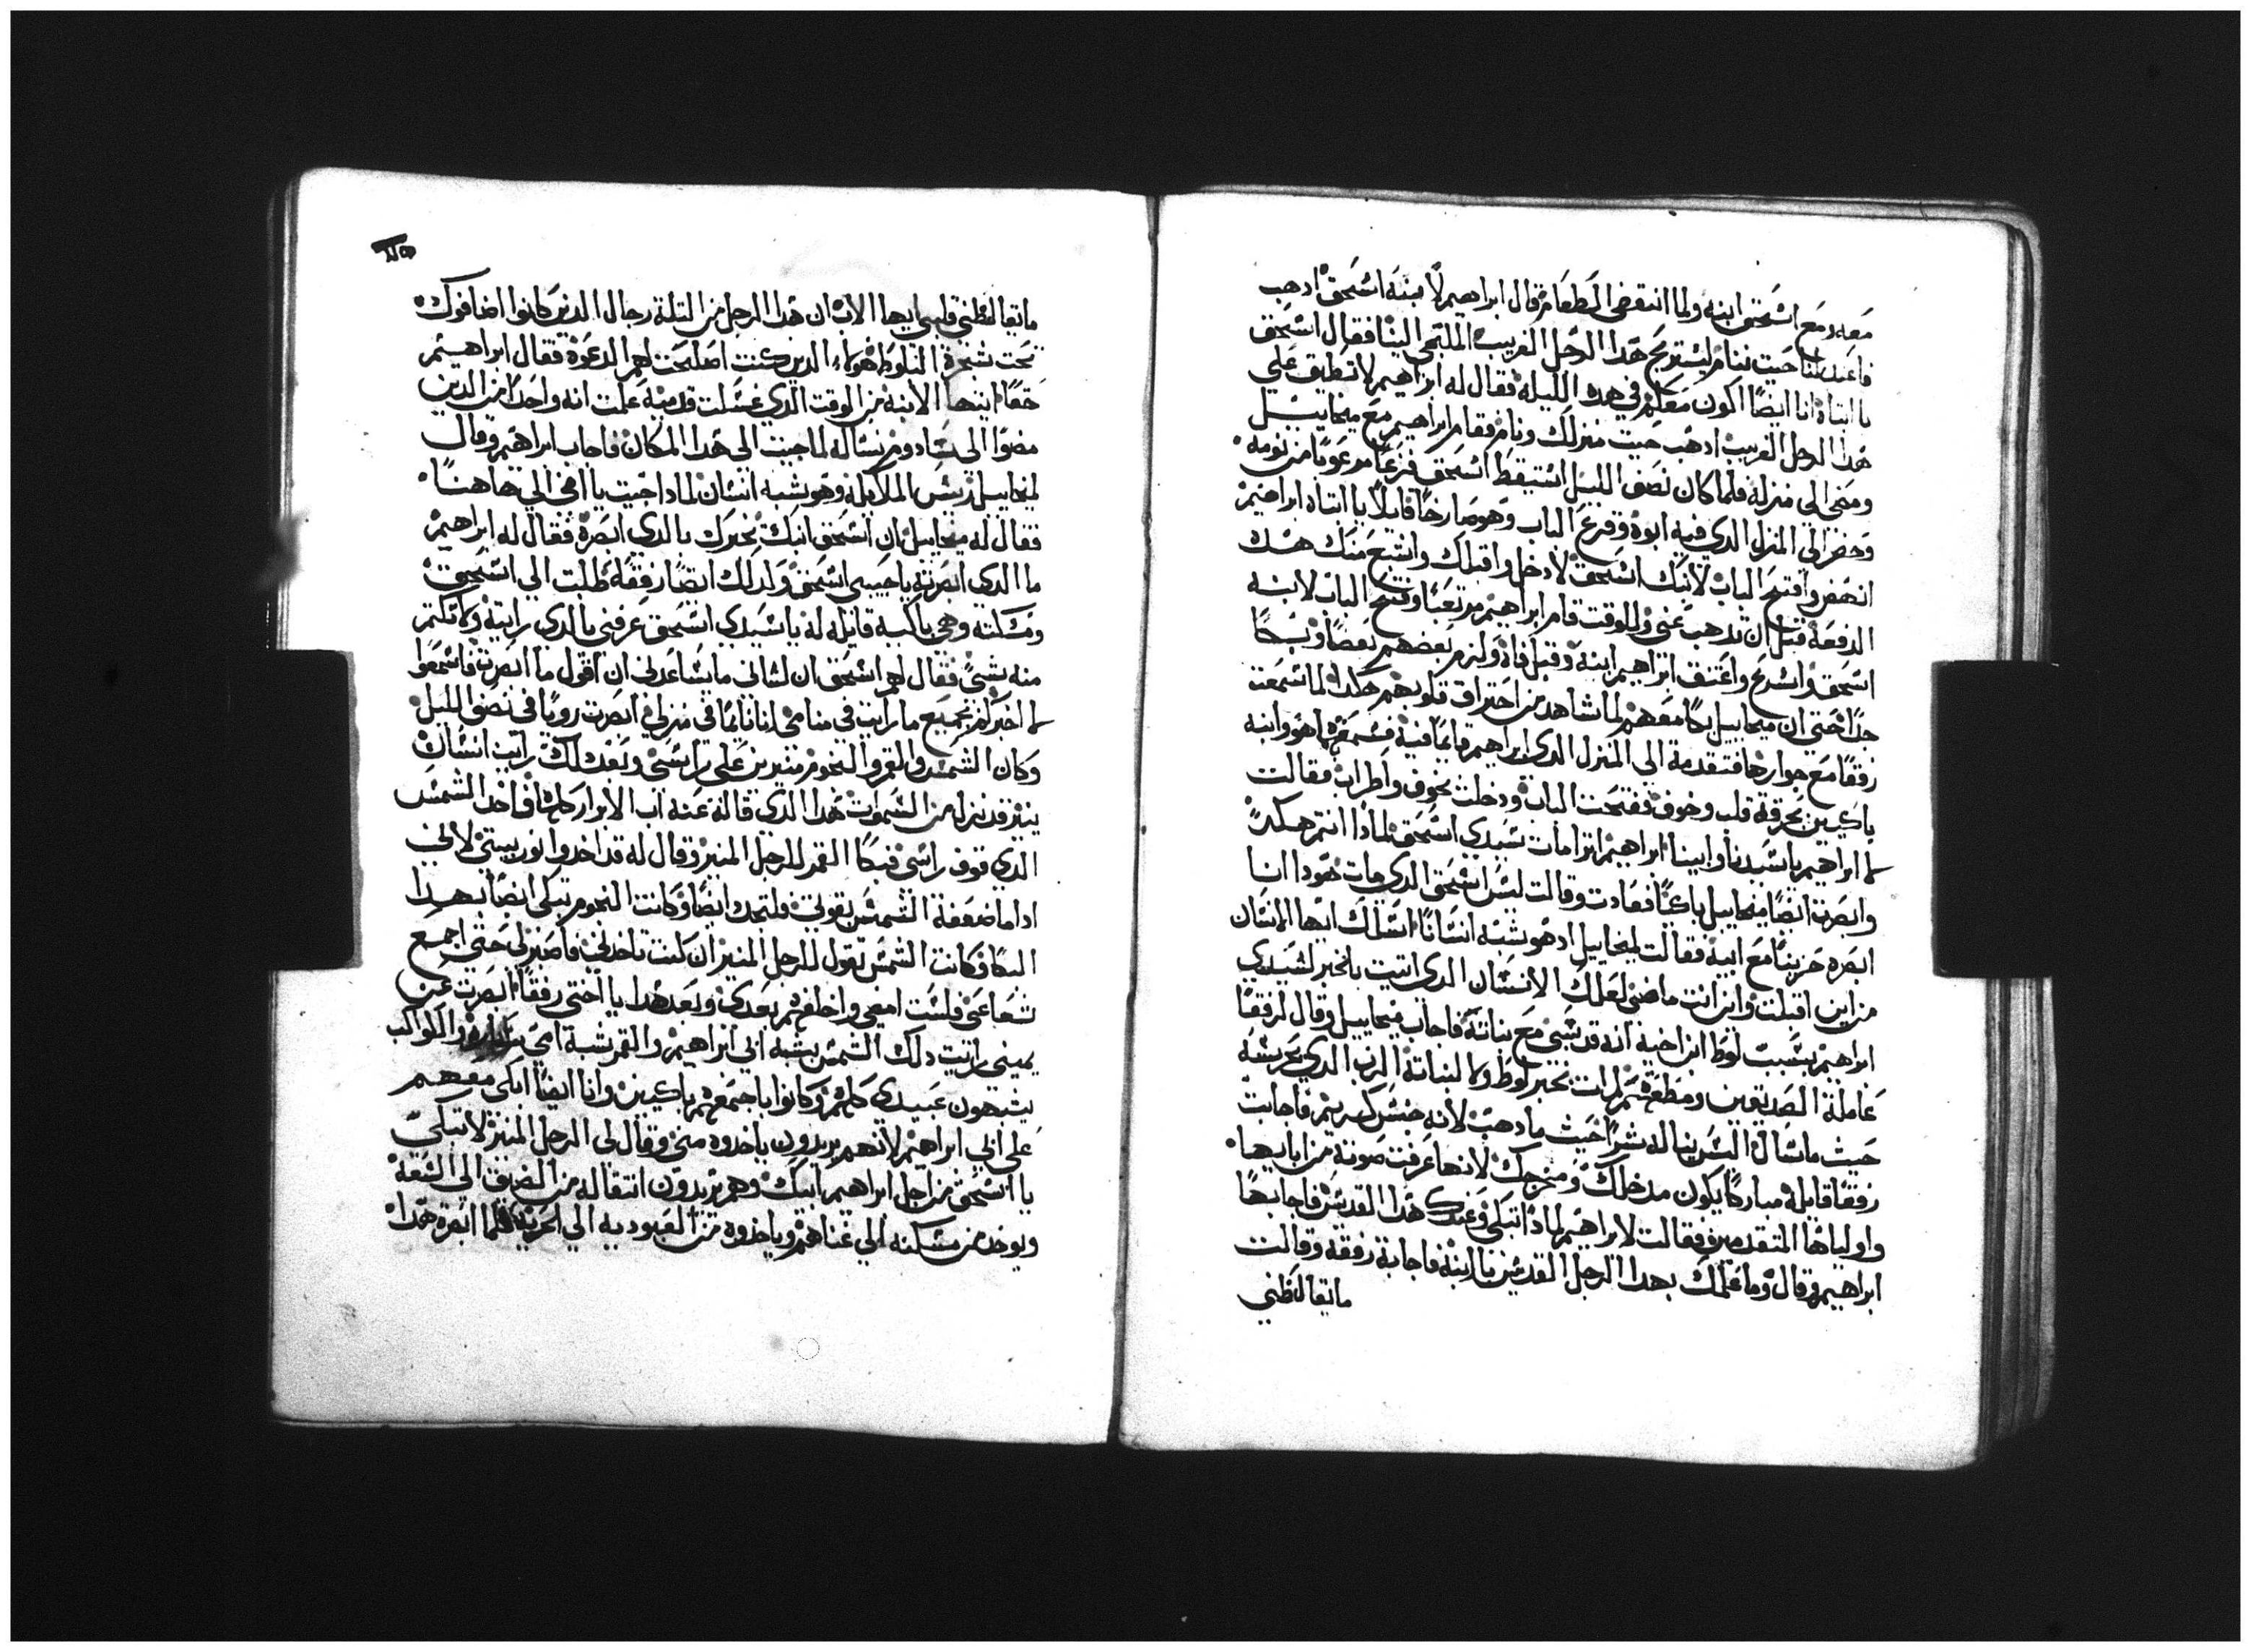 معه ومع اسحق ابنه ولما انقضى الطعام قال ابراهيم لابنه اسحق ادهب
فاعد لنا حيت ننام ليستريح هدا الرجل الغريب الملتجي الينا فقال اسحق
يا ابتاه انا ايضا اكون معكم في هده الليلة فقال له ابراهيم لا تطيق علي
هدا الرجل الغريب ادهب حيت منزلك ونام فقام ابراهيم مع ميخاييل
ومضى الى منزله فلما كان نصف الليل استيقظ اسحق فزعا مرعوبا من نومه
وحضر الى المنزل الدي فيه ابوه وقرع الباب وهو صارخا قايلا يا ابتاه ابراهيم
انهض وافتح الباب لابنك اسحق لادخل واقبلك واشبع منك هده
الدفعة قبل ان تدهب عني وللوقت قام ابراهيم مرتعبا وفتح الباب لابنه
اسحق واعتنق ابراهيم ابنه وقبل فاه ولزم بعضهم بعضا وبكا
جدا حتى ان ميخاييل بكا معهم لما شاهد من احتراق قلوبهم هكدا لما سمعت
رفقا مع جوارها فتقدمة الى المنزل الدي ابراهيم نايما فيه فسمعتهما هو وابنه
باكيين بحرقة قلب وخوف ففتحت الباب ودخلت بخوف واضطراب فقالت
لابراهيم يا سيدنا وابينا ابراهيم اترا مات سيدي اسحق لمادا انتم هكدى
وابصرت ايضا ميخاييل باكيا فعادت وقالت ليس اسحق الدي مات هودا انا
ابصره حزينا مع ابيه فقالت لميخاييل اد هو شبه انسانا اسلك ايها الانسان
من اين اقبلت واين انت ماضي لعلك الانسان الدي اتيت بالخبر لسيدي
ابراهيم بسبب لوط ابن اخيه انه قد سبي مع بناته فاجاب ميخاييل وقال لرفقا
عاملة الصديقين لم ات بخبر لوط ولا لبناته الرب الدي يحرسه
حيث ماشا له شرا حيث ما دهب لانه جنس كريم فاجابت
رفقا قايلة مباركا يكون مدخلك ومخرجك لانها عرفت صوته من ابايها
واولياها المتقدمين فقالت لابراهيم لمادا تبكي وعندك هدا القديس فاجابها
ابراهيم وقال وما علمك بهدا الرجل القديس يا ابنة فاجابة رفقه وقالت
ما يغالطني
ما يغالطني قلبي ايها الاب ان هدا الرجل من التلتة رجال الدين كانوا اضافوك
تحت شجرة البلوط هولاء الدين كنت اصلحت لهم الدعوة فقال ابراهيم
حقا ايتها الابنة من الوقت الدي غسلت قدميه علمت انه واحدا من الدين
مضوا الى سادوم نساله لما جيت الى هدا المكان فاجاب ابراهيم وقال
لميخاييل رييس الملايكة وهو شبه انسان لمادا جيت يا اخي الي هاهنا
فقال له ميخاييل ان اسحق ابنك يخبرك بالدي ابصره فقال له ابراهيم
ما الدي ابصرته يا حبيبي اسحق ولدلك ايضا رفقه طلبت الي اسحق
ومسكته وهي باكية قايله له يا سيدي اسحق عرفني بالدي رايته ولا تكتم
منه شيئ فقال لهم اسحق ان لساني ما يساعدني ان اقول ما ابصرت فاسمعوا
لاخبركم بجميع ما رايت في منامي انا نايما في منزلي ابصرت رويا في نصف الليل
وكان الشمس والقمر والنجوم منيرين على راسي وبعد دلك رايت انسان
ينير قد نزل من السموات هدا الدي قاله عنه اب الابرار كلها فاخد الشمس
الدي فوق راسي فبكا القمر للرجل المنير وقال له قد اخدوا نور بيتي لانني
ادا ما ضعفة الشمس بقوتي فلتجد ايضا وكانت النجوم تبكي ايضا بهدا
البكا فكانت الشمس تقول للرجل المنير ان كنت تاخدني فاصبر لي حتى اجمع
شعاعي فلست امضي واخلفهم بعدي وبعد هدا يا اختي رفقا ابصرت عن
يميني رايت دلك الشمس يشبه ابي ابراهيم والقمر شبه امي والكواكب
يشبهون عبيدي كلهم وكانوا باجمعهم باكيين وانا ايضا ابكي معهم
على ابي ابراهيم لانهم يريدون ياخدوه مني وقال لي الرجل المنير لا تبكي
يا اسحق من اجل ابراهيم ابيك وهم يريدون انتقاله من الضيق الى السعة
ويوخد من مسكنه الي غناهم وياخدوه من العبوديه الي الحرية فلما ابصره هدا